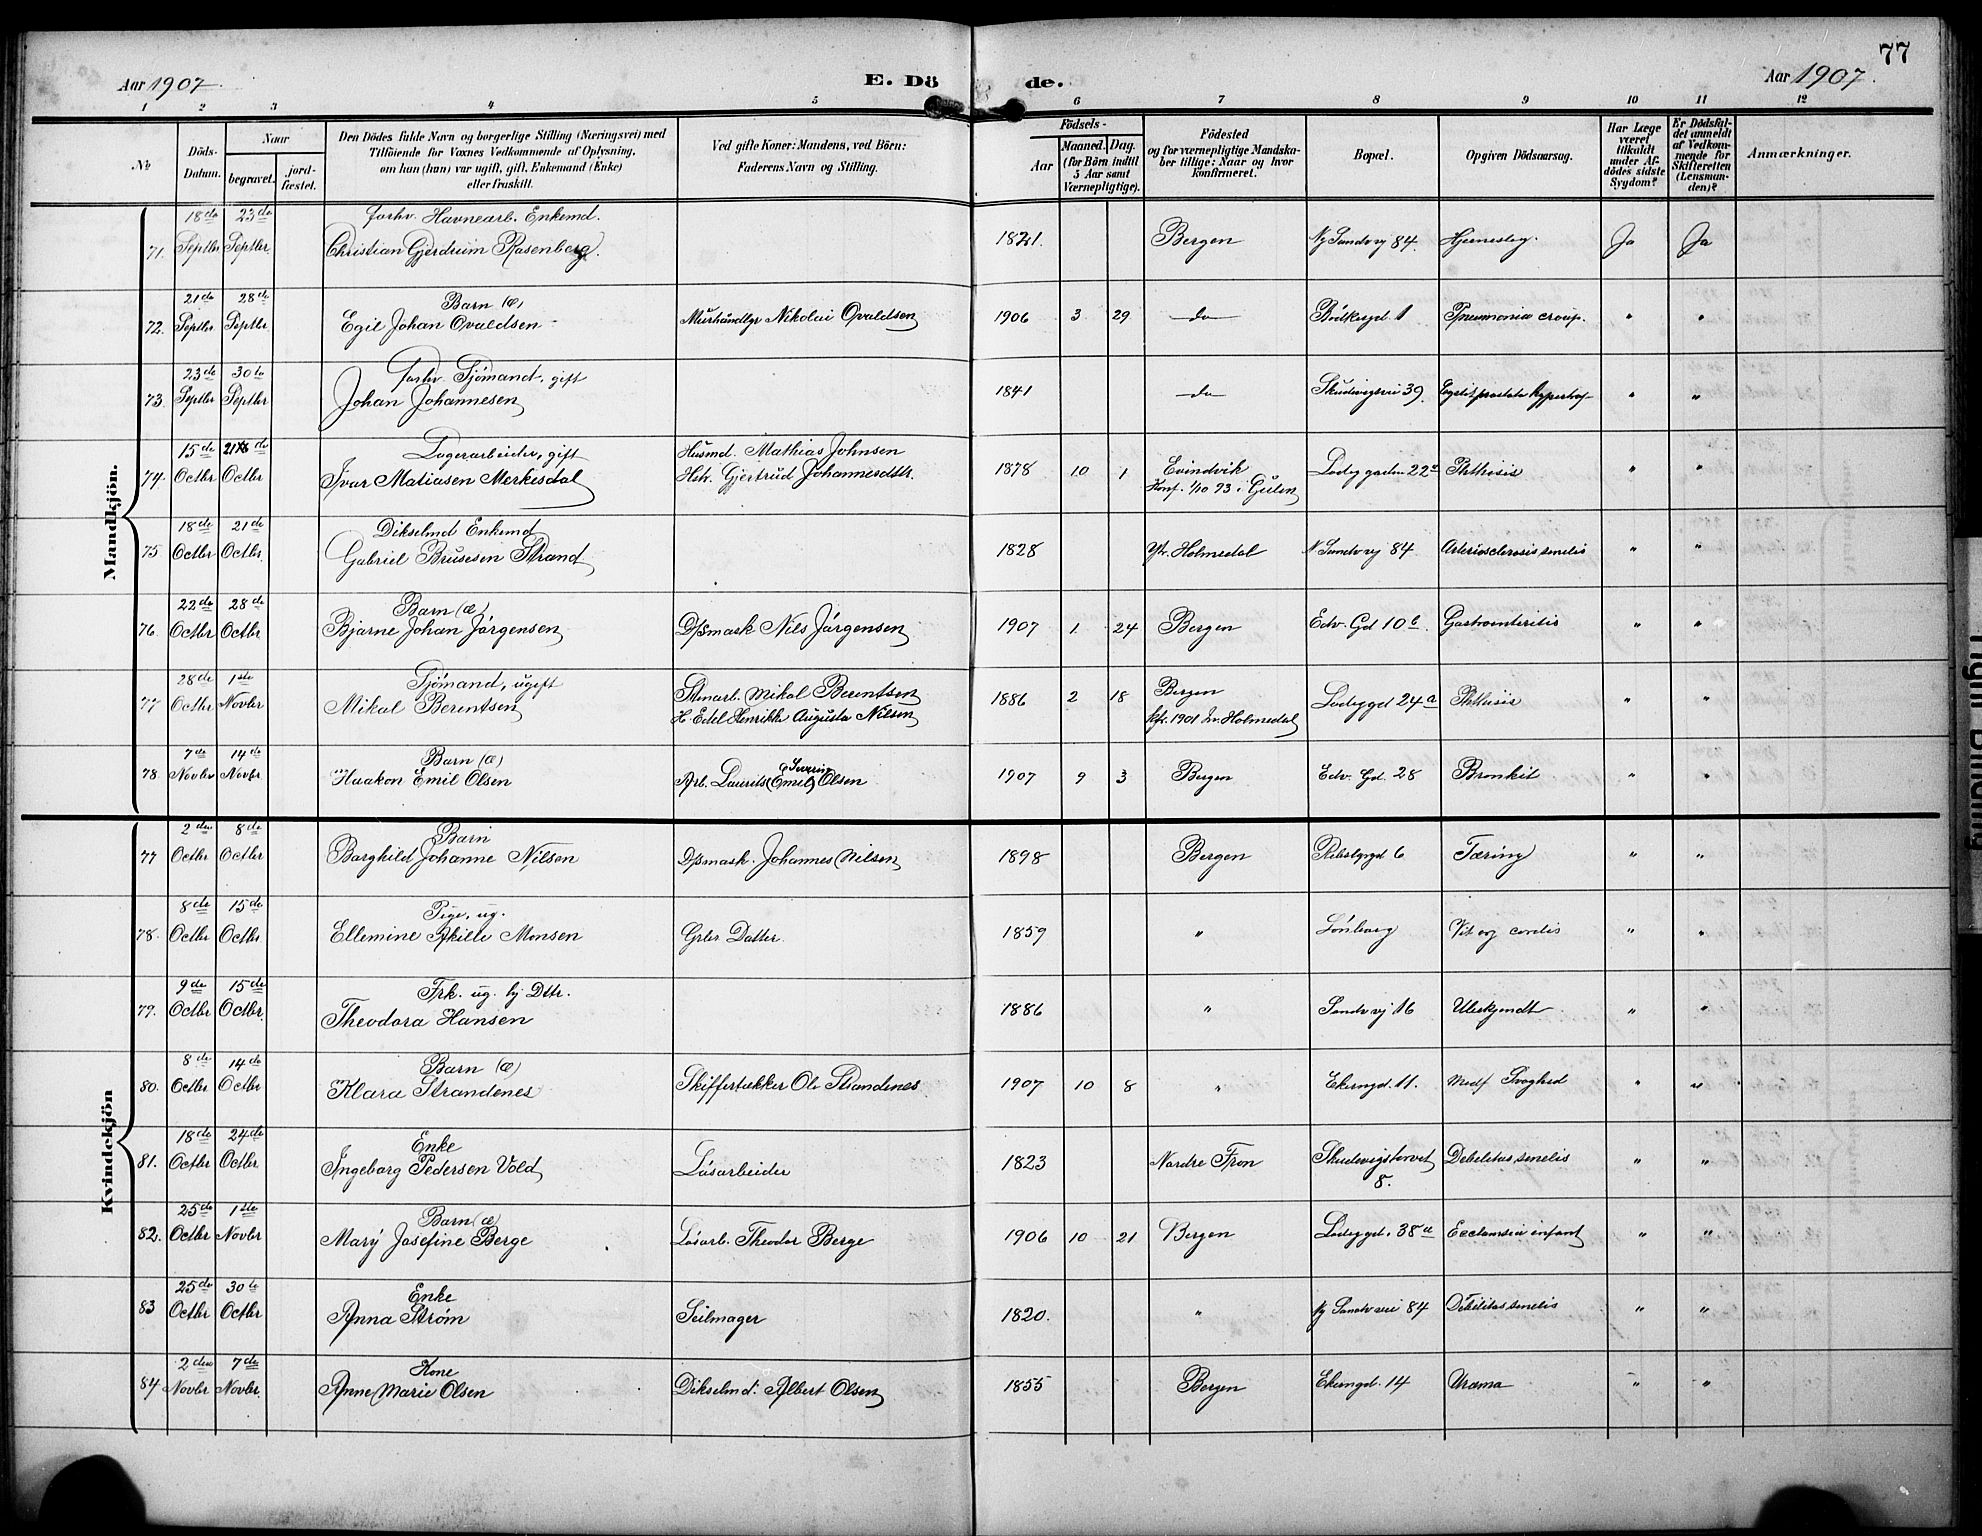 77
Aar 1907.
E. Dö
de.
Aar 1907.
1 2 3 4 5 6 7 8 9 10 11 12
No
Döds-Datum.
Naar
begravet.
jord-fæstet.
Den Dödes fulde Navn og borgerlige Stilling (Næringsvei) med
Tilföiende for Voxnes Vedkommende af Oplysning,
om han (hun) var ugift, gift, Enkemand (Enke)
eller fraskilt.
Ved gifte Koner: Mandens, ved Börn:
Faderens Navn og Stilling.
Födsels-
Aar
Maaned.
Dag.
(for Börn indtil
5 Aar samt
Værnepligtige).
Födested
og for værnepligtige Mandska-
ber tillige: Naar og hvor
konfirmeret.
Bopæl.
Opgiven Dödsaarsag.
Har Læge
været
tilkaldt
under Af-
dödes sidste
Sygdom?
Er Dödsfal-
det anmeldt
af Vedkom-
mende for
Skifteretten
(Lensman-
den)?
Anmærkninger.
Mandkjön.
18de 23de forhv. Havnearb. Enkemd.
71. Septbr Septbr. Christian Gjerdrum Rosenberg. 1821. Bergen Ny Sandvvj 84. Hjerneslag. Ja Ja
21de 28de Barn (æ)
72. Septbr Septbr Egil Johan Ovaldsen Murhandlgr Nikolai Ovaldsen 1906 3 29 do Bödkergd 1 Pneumonia croup. " "
23de 30te Forhv. Sjömand, gift
73. Septbr Septbr Johan Johannesen 1841 do Skudevigsvei 39. " "
15de 21de Lagerarbeider, gift Husmd. Mathias Johnsen
74. Octbr Octbr Ivar Matiasen Merkesdal Hstr. Gjertrud Johannesdttr. 1878 10 1 Evindvik Ladeggaden 22a Phthisis " "
Konf. 1/10 93 i Gulen
18de 21de Dikselmd Enkemd
75 Octbr Octbr. Gabriel Brusesen Strand 1828 Ytr. Holmedal N Sandvvj 84 Arteriosclerosis senilis " "
22de 28de Barn (æ)
76. Octbr Octbr Bjarne Johan Jörgensen D/smask Nils Jörgensen 1907 1. 24 Bergen Edv. Gd 10b. Gastroenteritis " "
28de 1ste Sjömand, ugift Stenarb. Mikal Berentsen
77 Octbr Novbr Mikal Berentsen H. Edel Henrikke Augusta Nilsen 1886 2 18 Bergen Ladeggd 24a Phthisis " "
kfr. 1901 Holmedal
7de 14de Barn (æ)
78. Novbr Novbr. Haakon Emil Olsen Arb. Laurits (Emil) Severin Olsen 1907 9 3 Bergen Edv. Gd. 28 Bronkit " "
Kvindekjön
2den 8de Barn
77 Octbr Octbr Borghild Johanne Nilsen D/smask. Johannes Nilsen 1898 Bergen 6 Tæring " "
8de 15de Pige, ug.
78. Octbr Octbr. Ellemine Monsen Datter 1859 " Lönborg Vit org cordis " "
9de 15de Frk. ug. Dttr.
79. Octbr Octbr. Theodora Hansen 1886 " Sandvvj 16 Ubekjendt " "
8de 14de Barn (æ)
80. Octbr Octbr Klara Strandenes Skiffertækker Ole Strandenes 1907 10 8 " Ekerngd. 11. Medf Svaghed " "
18de 24de Enke
81. Octbr Octbr Ingeborg Pedersen Vold Lösarbeider 1823 Nordre Fron Skudevigstorvet Debilitas senilis " "
8.
25de 1ste Barn (æ)
82. Octbr Novbr Mary Josefine Berge Lösarb. Theodor Berge 1906 10 21 Bergen Ladeggd. 38a Ecclamsia infant " "
25de 30te Enke
83 Octbr Octbr Anna Ström Seilmager 1820. " Ny Sandvvei 84 Debilitas senilis " "
2den 7de Kone
84 Novbr Novbr. Anne Marie Olsen Dikselmd. Albert Olsen 1855 Bergen Ekerngd. 14 Uræma " "